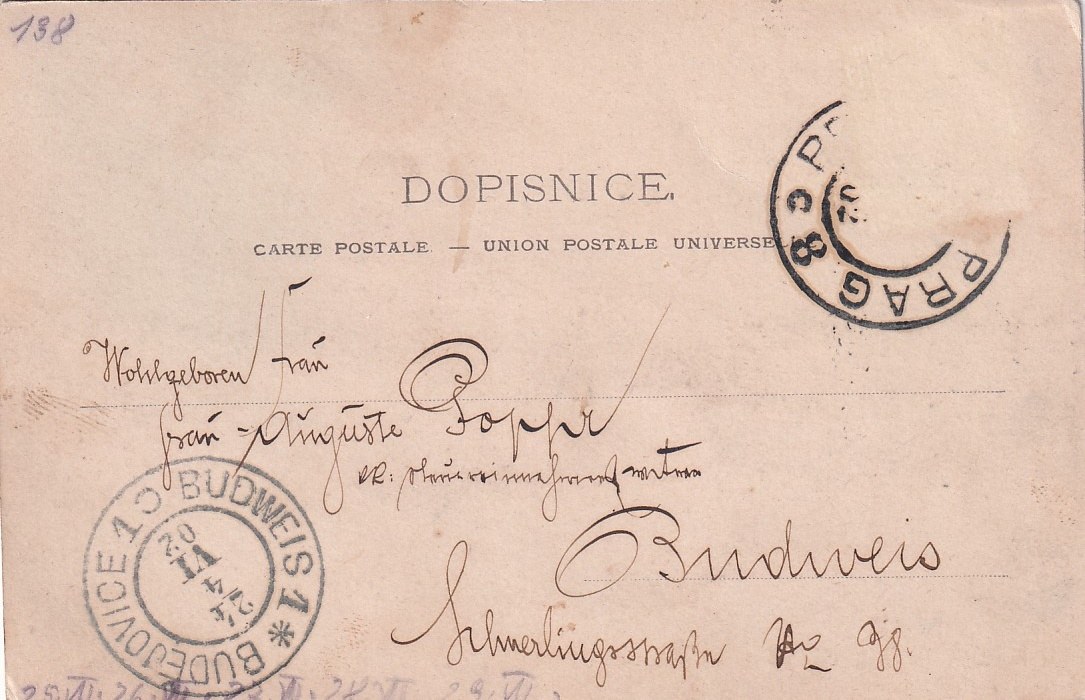 138
DOPISNICE.
CARTE POSTALE. — UNION POSTALE UNIVERSEL
PRAG 8 c
Wohlgeboren Frau
Frau Auguste
kk: Steuereinnehmers witwe
Budweis
Schmerlingsstraße No
BUDWEIS 1 * BUDĚJOVICE 1
VI